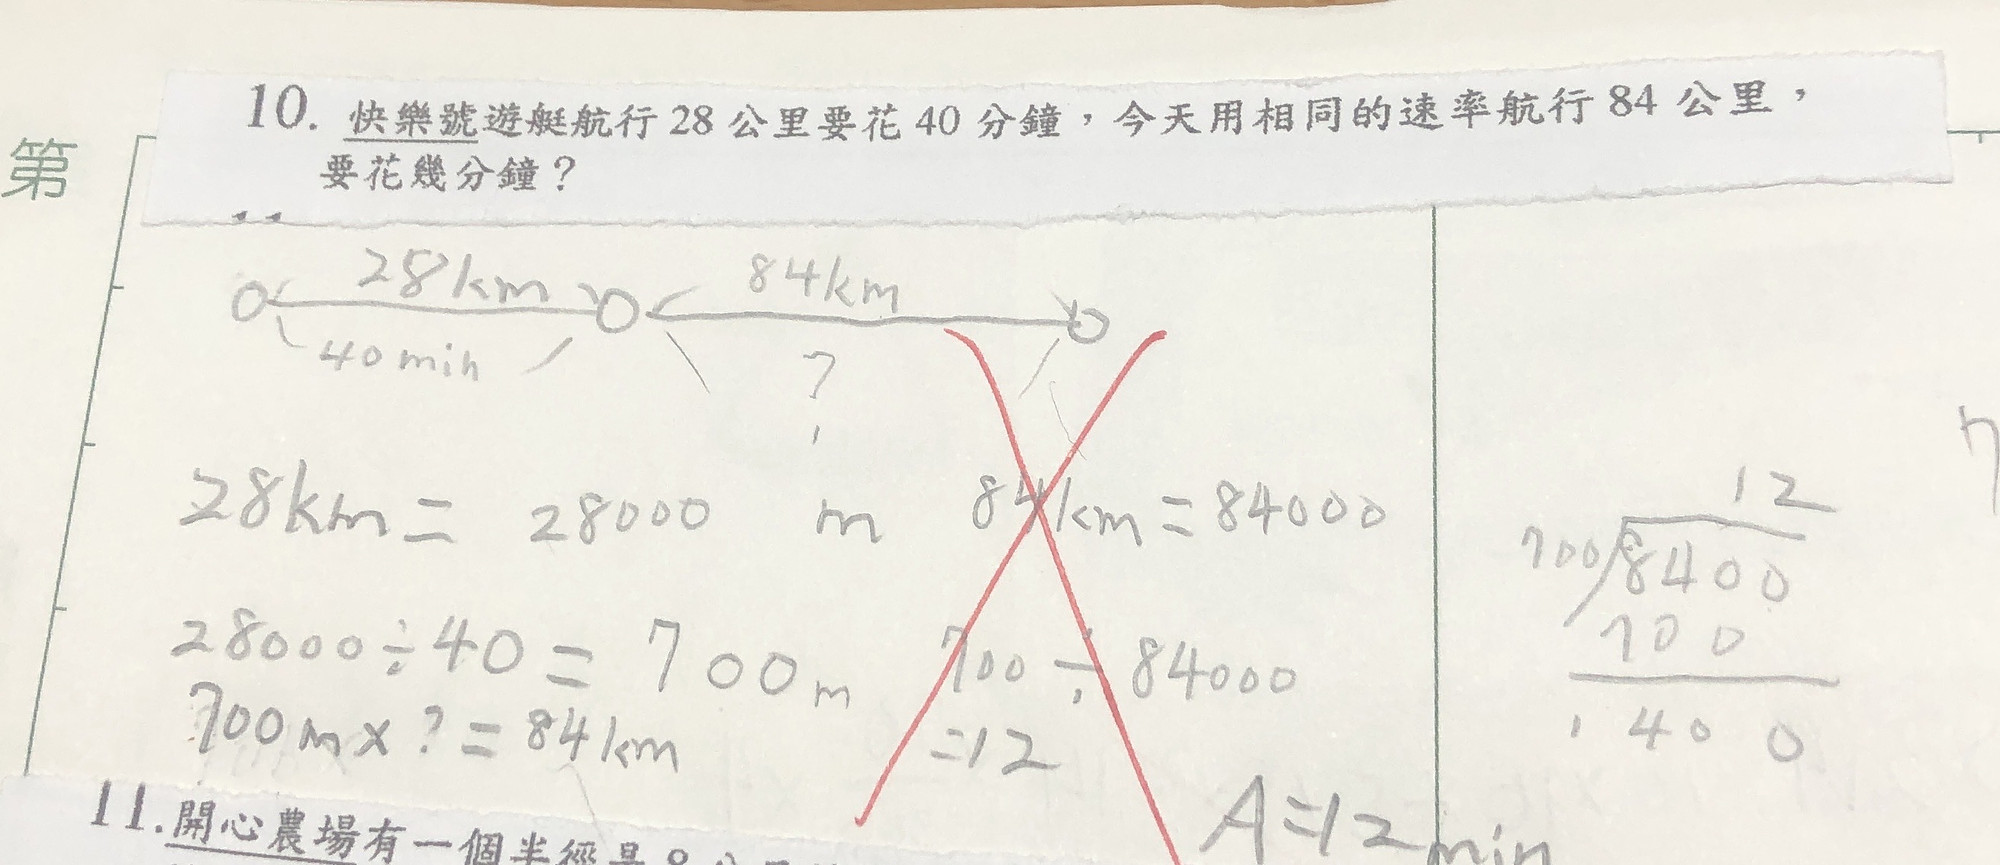 10. 快樂號遊艇航行 28 公里要花 40 分鐘，今天用相同的速率航行 84 公里，
要花幾分鐘？
第
28km 84km
40min ?
28km = 28000 m 84km = 84000
28000÷40 = 700m 700 ÷ 84000
700m x ? = 84km =12
A=12min
12
700 8400
700
1400
7
11. 開心農場有一個半徑是8公